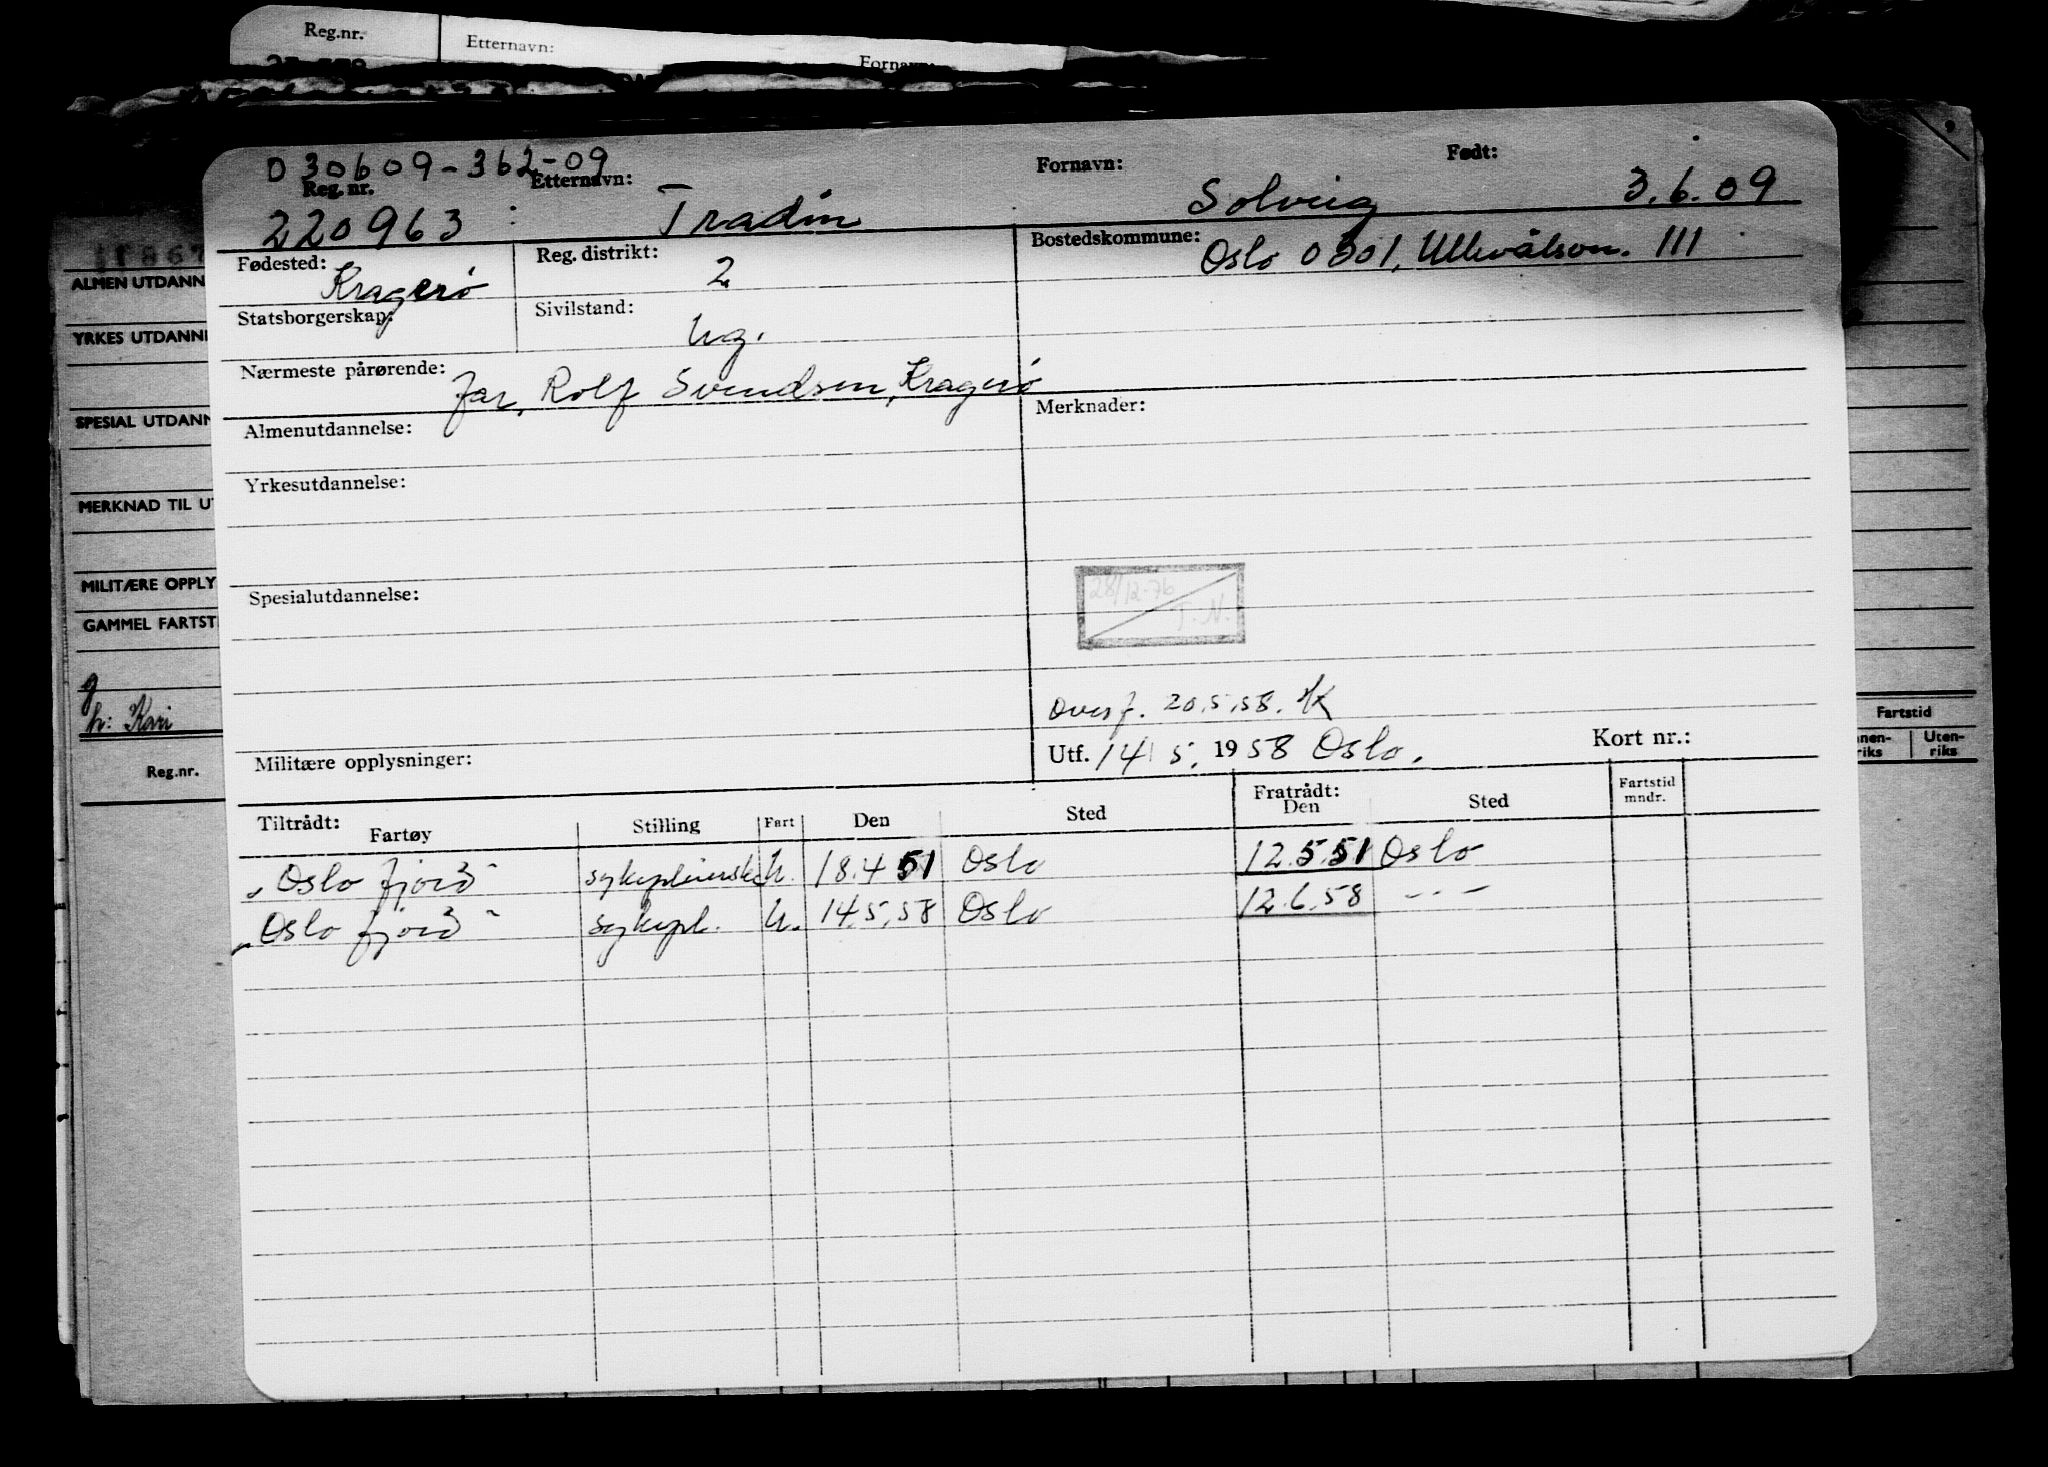 Reg.nr.
Etternavn:
Fornavn:
D 30609-362-09
Reg. nr.
Etternavn:
Fornavn:
Født:
220963
Tradin
Solveig
3.6.09
Fødested:
Kragerø
Reg. distrikt:
2
Bostedskommune:
Oslo 0301, Ullevålsvn. 111
Statsborgerskap:
Sivilstand:
ug.
Nærmeste pårørende:
far, Rolf Svendsen, Kragerø
Almenutdannelse:
Merknader:
Yrkesutdannelse:
28/12-76
T.N.
Spesialutdannelse:
Overf. 20.5.58. HK
Militære opplysninger:
Utf. 14/5. 1958 Oslo.
Kort nr.:
Tiltrådt:
Fartøy
Stilling
Fart
Den
Sted
Fratrådt:
Den
Sted
Fartstid
mndr.
"Oslofjord" sykepleierske u. 18.4 51 Oslo 12.5.51 Oslo
"Oslofjord" sykepl. u. 14.5.58 Oslo 12.6.58 - - -
ALMEN UTDANN
YRKES UTDANN
SPESIAL UTDANN
MERKNAD TIL U
MILITÆRE OPPLY
GAMMEL FARTST
g
h: Kari
Reg.nr.
Fartstid
nen-
riks
Uten-
riks